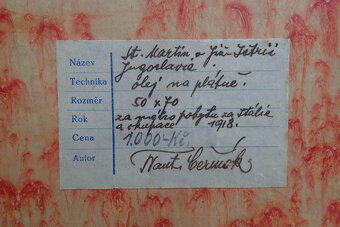 Název St. Martin v Jižní Istrii
Jugoslavie.
Technika olej na plátně.
Rozměr 50 x 70
Rok za mého pobytu za Itálie
a okupace 1918.
Cena 1.000 Kčs
Autor Čermák